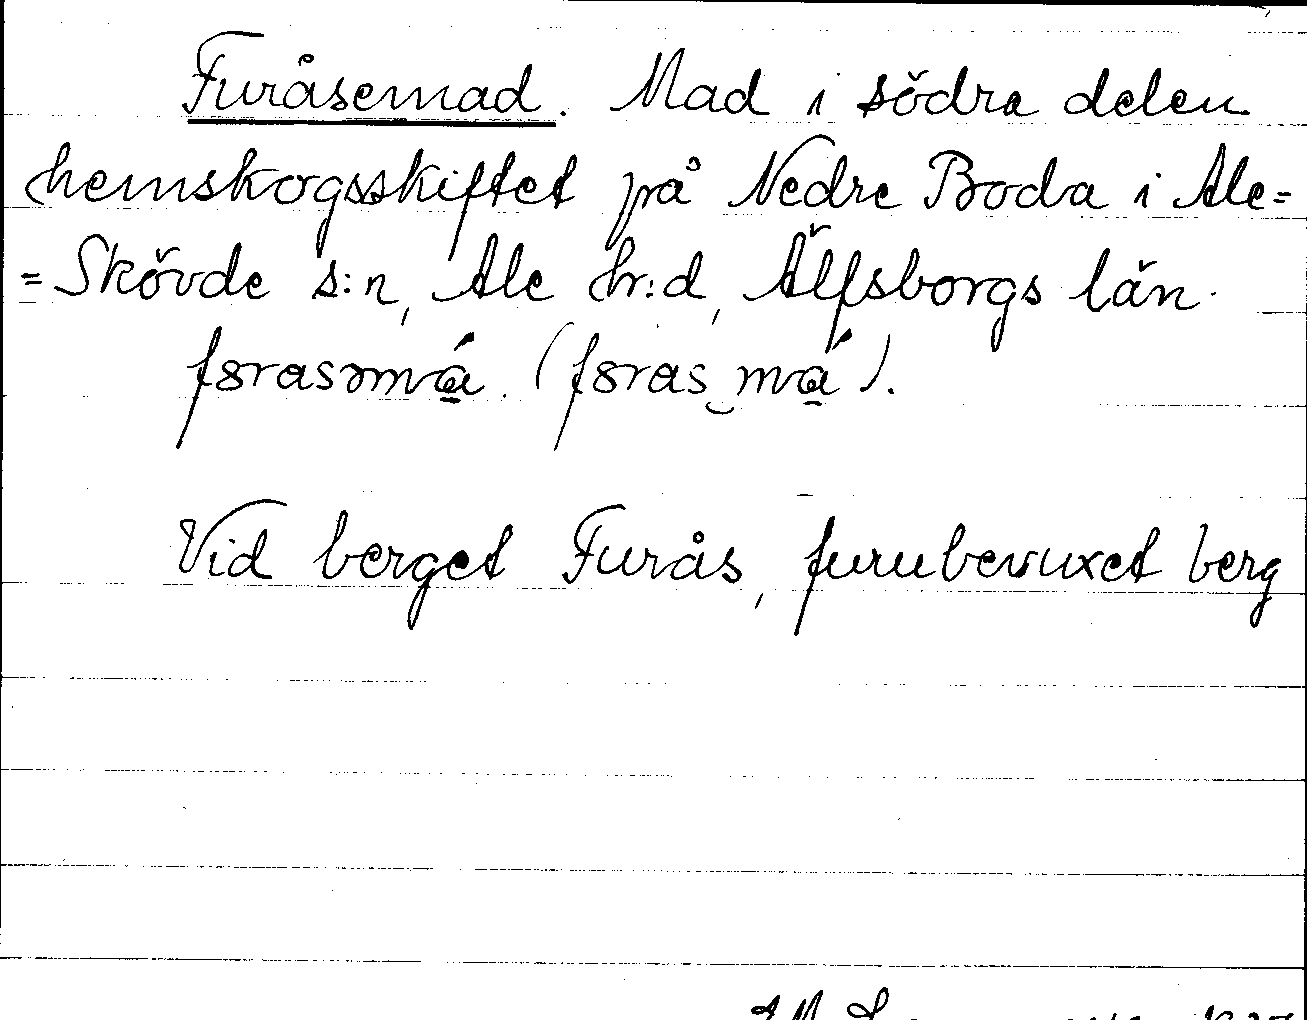 Furåsemad. Mad i södra delen
hemskogsskiftet på Nedre Boda i Ale=
=Skövde s:n, Ale hr:d, Älfsborgs län.
forasəmá. (foras má).
Vid berget Furås, furubevuxet berg